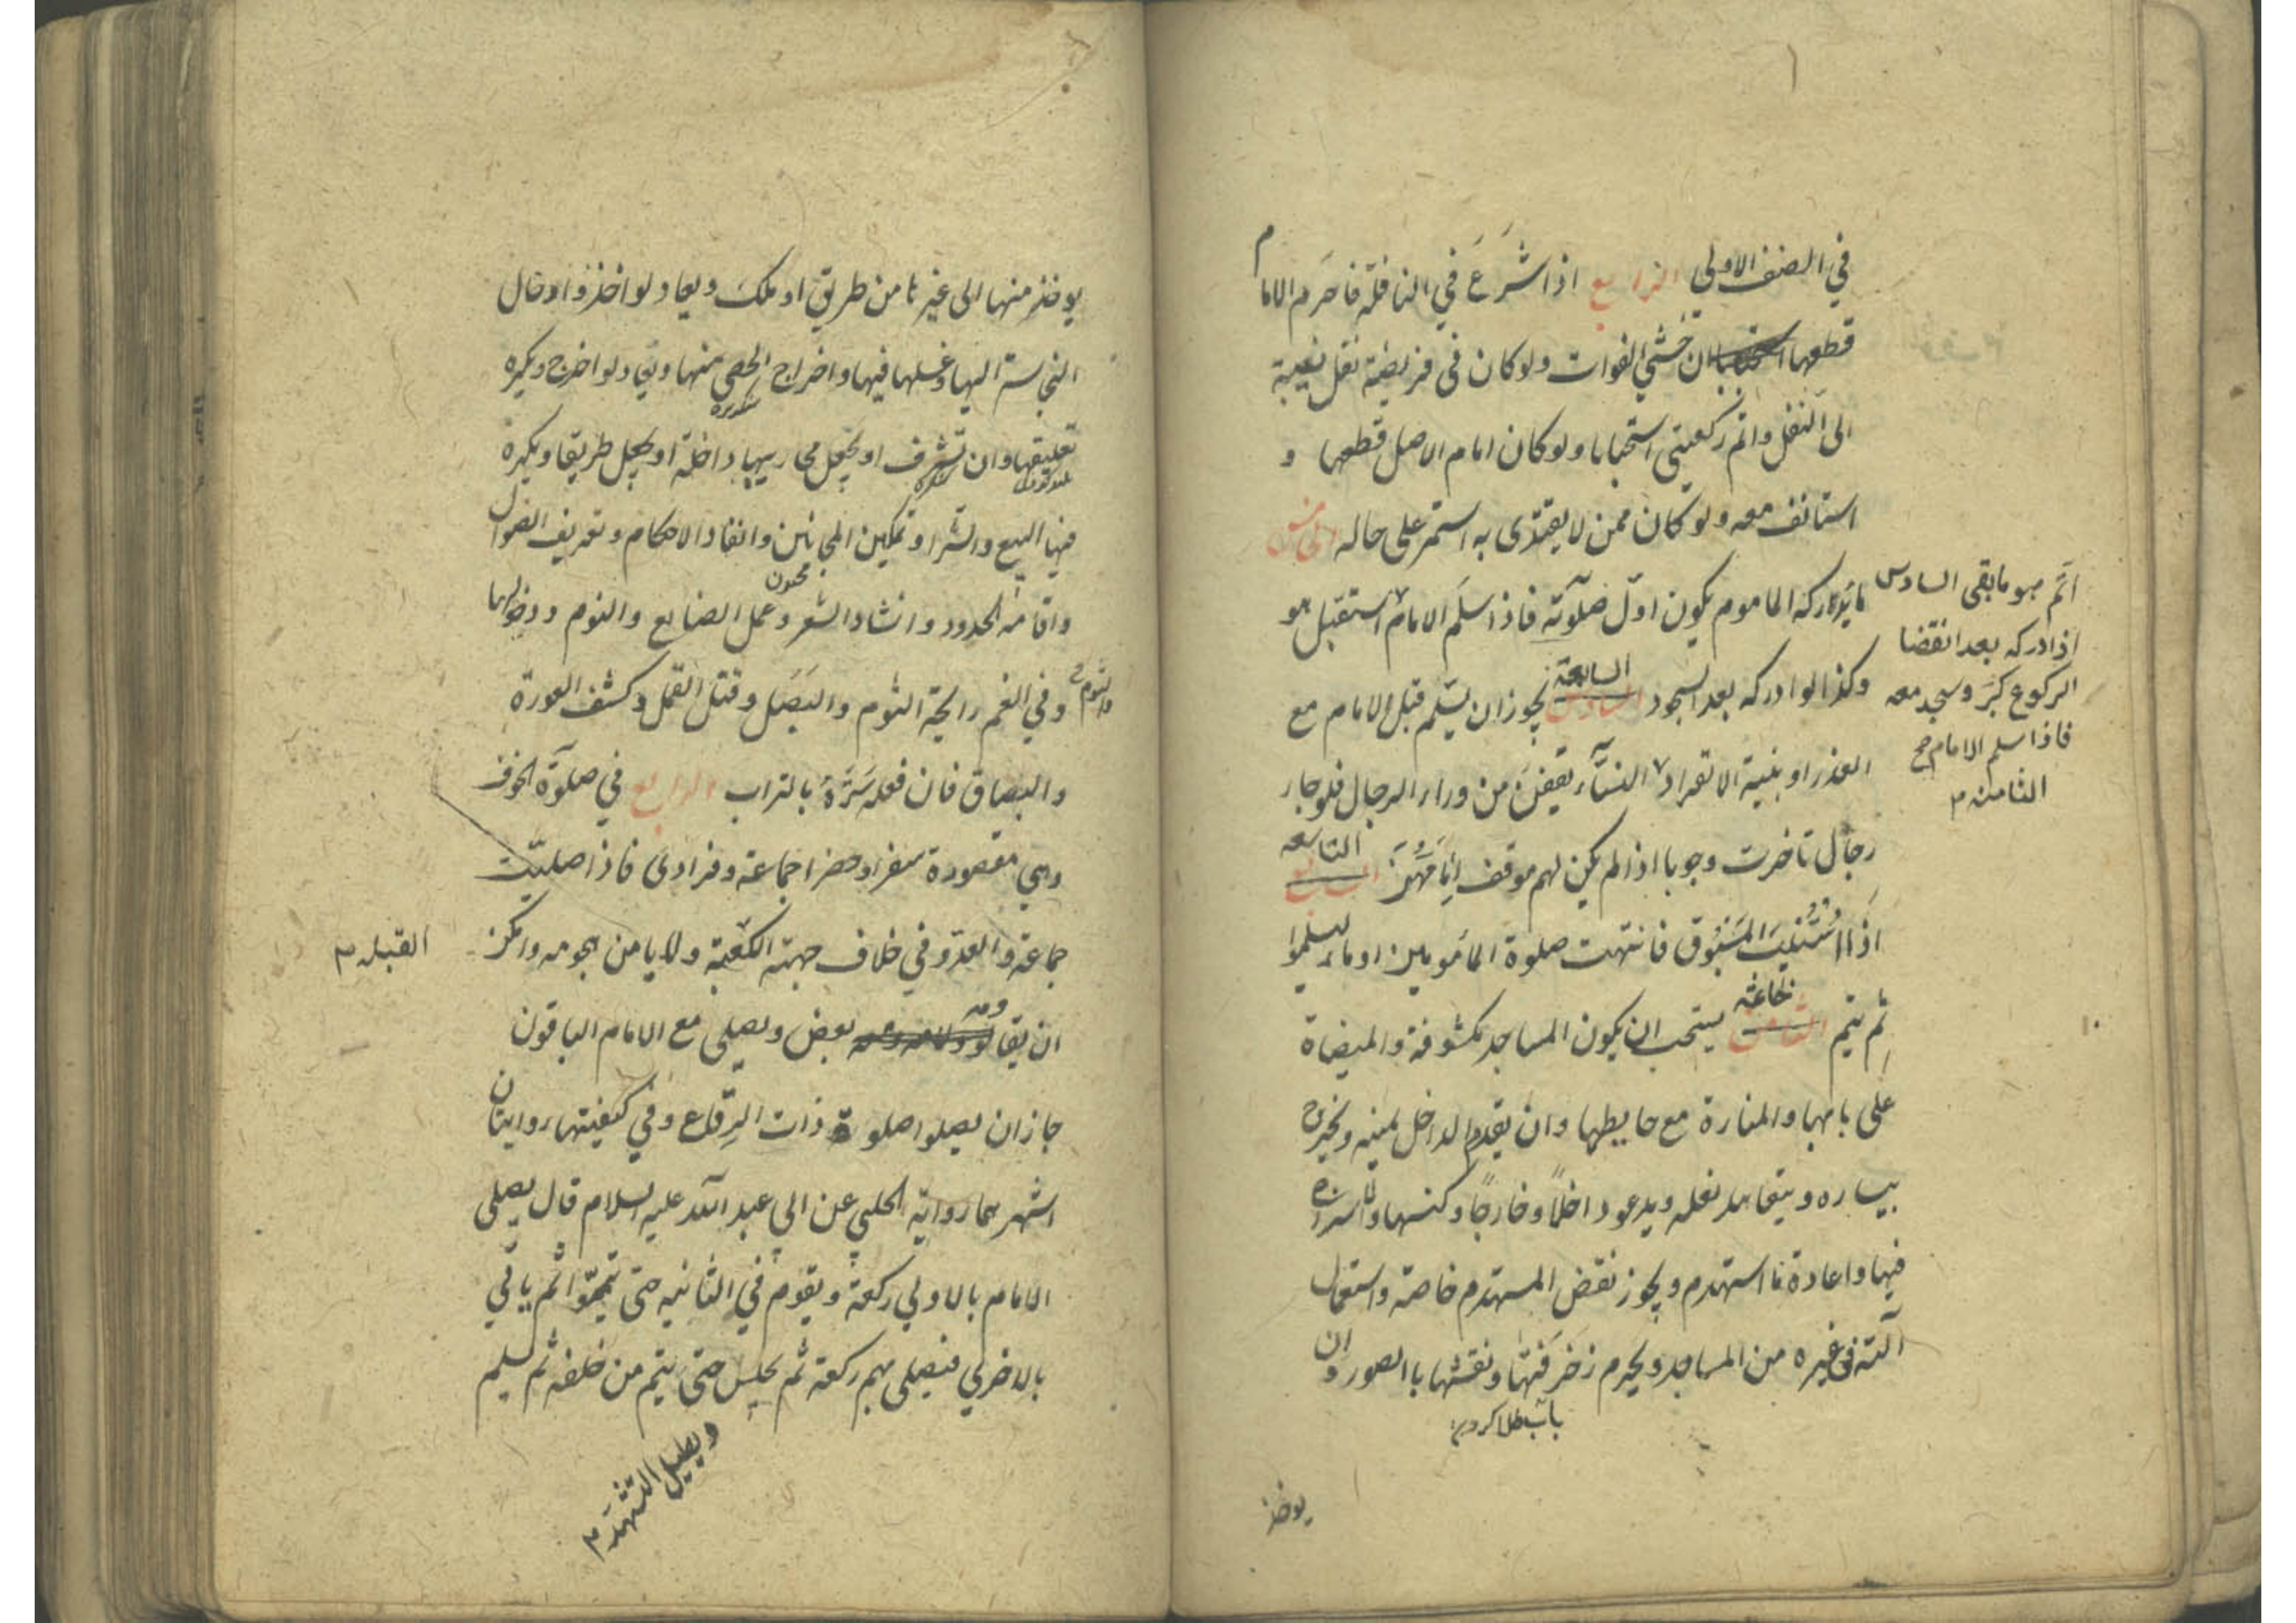 في الصف الاولى الرابع اذا شَرَعَ في النافلة فاحرم الامام
قطعها استحبابا ان خشي الفوات ولو كان في فريضة نقل نيته
الى النفل واتم ركعتين استحبابا ولو كان امام الاصل قطعها و
استانف معه ولو كان ممن لا يقتدى به استمر على حاله الخامس
ما يدركه الماموم يكون اوّل صلوته فاذا سلم الامام استقبل هو
اتم هو ما بقى السادس
اذا ادركه بعد انقضا
الركوع كبر وسجد معه
فاذا سلم الامام
الثامنه م
وكذا لو ادركه بعد السجود السابعة يجوز ان يسلم قبل الامام مع
العذر او بنية الانفراد النسآء يقفن من وراء الرجال فلو جاء
رجال تاخرت وجوبا اذا لم يكن لهم موقف امامهن التاسعه
اذا استنيب المسبوق فانتهت صلوة المامومين اوماء ليسلموا
ثم يتم خاتمه يستحب ان يكون المساجد مكشوفة والميضاة
على بابها والمنارة مع حايطها وان يقدم الداخل يمينه ويخرج
بيساره ويتعاهد نعله ويدعو داخلًا وخارجًا وكنسها والاسراج
فيها واعادة ما استهدم ويجوز نقض المستهدم خاصة واستعمال
آلته في غيره من المساجد ويحرم زخرفتها ونقشها بالصور وان
باب طلا كردن
يوخذ
يوخذ منها الى غيرها من طريق او ملك ويعاد لو اخذ وادخال
النجاسة اليها وغسلها فيها واخراج الحصى منها ويعاد لو اخرج ويكره
تعليتها وان تشرف او يجعل محاريبها داخلة او يجعل طريقا ويكره
فيها البيع والشرا وتمكين المجانين وانفاذ الاحكام وتعريف الضوال
واقامة الحدود وانشاد الشعر وعمل الصنايع والنوم ودخولها
وفي الفم رايحة الثوم والبصل وقتل القمل وكشف العورة
والبصاق فان فعله سَتَرَهُ بالتراب الرابع في صلوة الخوف
وهي مقصورة سفرا وحضرا جماعة وفرادى فاذا صليت
جماعة والعدو في خلاف جهة الكعبة ولا يا من هجومه وامكن
القبله م
ان يقاومه بعض ويصلى مع الامام الباقون
جاز ان يصلوا صلوة ذات الرقاع وفي كيفيتها روايتان
اشهرهما رواية الحلبي عن ابي عبد الله عليه السلام قال يصلى
الامام بالاولي ركعة ويقوم في الثانيه حتى يتموا ثم ياتي
بالاخرى فيصلى بهم ركعة ثم يجلس حتى يتم من خلفه ثم يسلم
ويطيل التشهد م